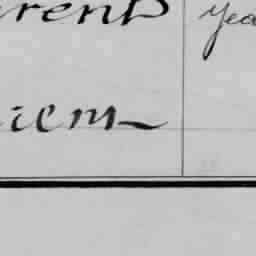 rents yea
iem